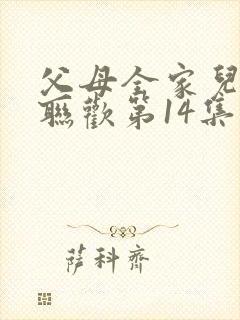 父母全家兒
聯歡第14集
薩科齊